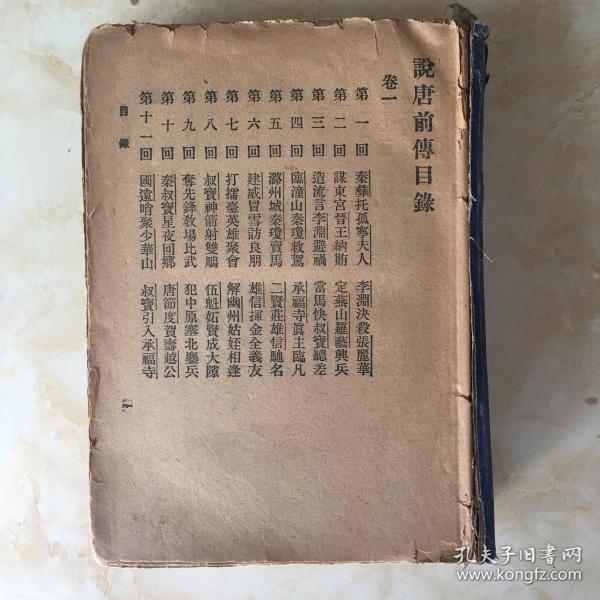 說唐前傳目錄
卷一
第一回 秦彝托孤寧夫人 李淵決殺張麗華
第二回 謀東宮晉王納賄 定燕山羅藝興兵
第三回 造流言李淵避禍 當馬快叔寶聽差
第四回 臨潼山秦瓊救駕 承福寺眞主臨凡
第五回 潞州城秦瓊賣馬 二賢莊雄信馳名
第六回 建威冒雪訪良朋 雄信揮金全義友
第七回 打擂臺英雄聚會 解幽州姑姪相逢
第八回 叔寶神箭射雙鵰 伍魁妬賢成大隙
第九回 奪先鋒敎場比武 犯中原塞北鏖兵
第十回 秦叔寶星夜回鄉 唐節度賀壽越公
第十一回 國遠嘯聚少華山 叔寶引入承福寺
目錄
孔夫子旧書网
www.kongfz.com